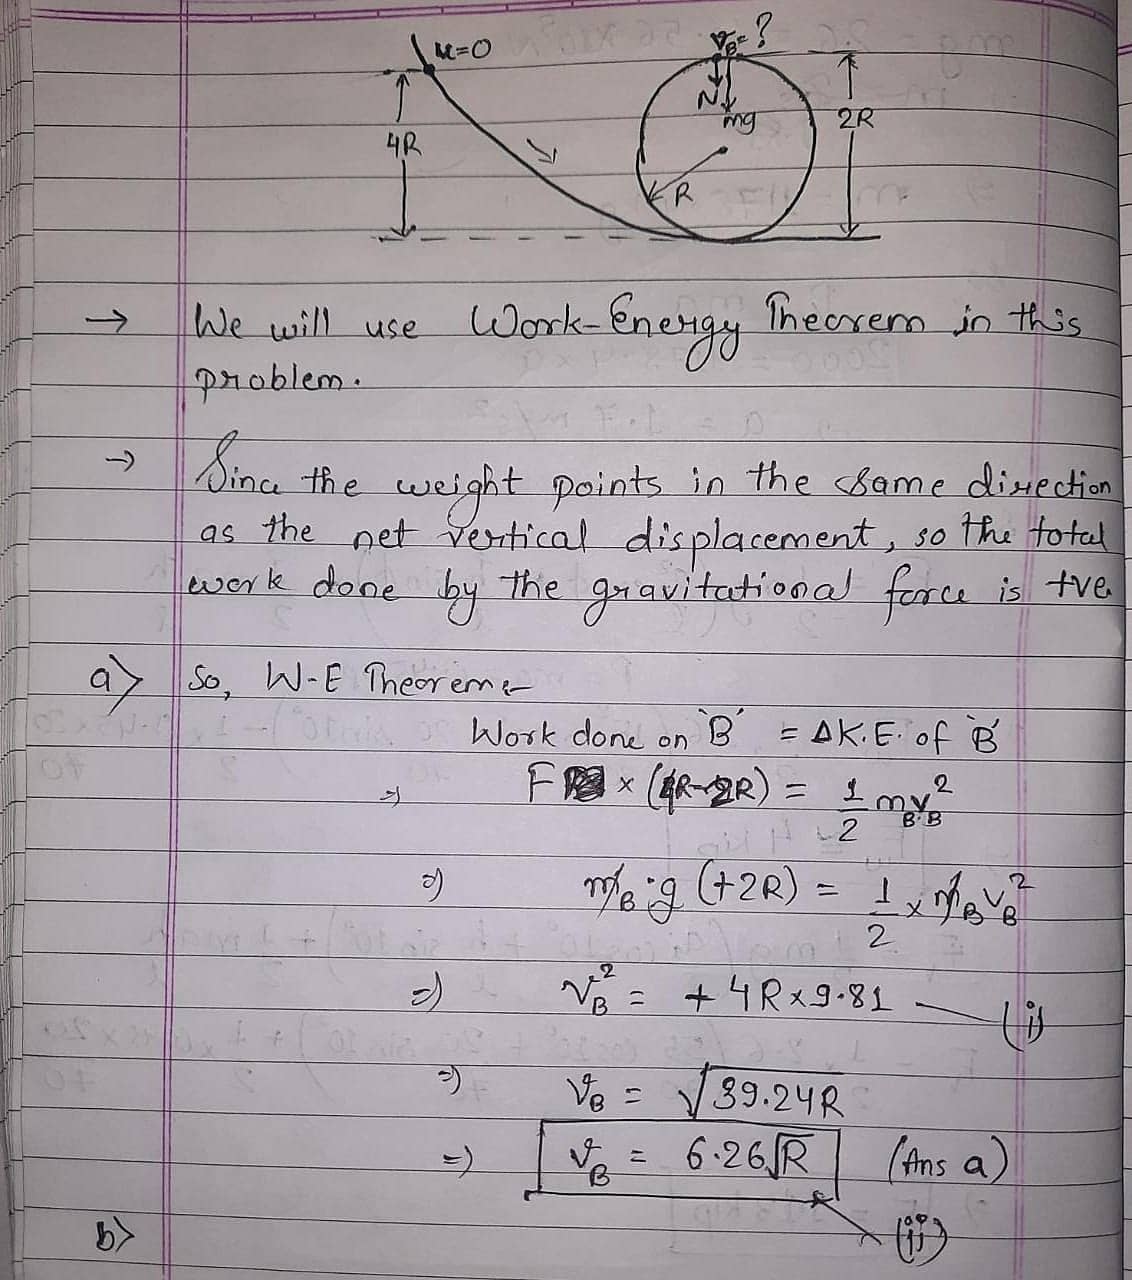 u=0
v_B=?
N
mg
4R
2R
R
→ We will use Work-Energy Theorem in this
problem.
→ Since the weight points in the same direction
as the net vertical displacement, so the total
work done by the gravitational force is +ve
a) So, W-E Theorem:-
Work done on 'B' = ΔK.E. of 'B'
⇒ F × (4R-2R) = 1/2 m_B v_B²
⇒ m_B·g (+2R) = 1/2 × m_B v_B²
⇒ v_B² = + 4R×9.81 — (i)
⇒ v_B = √39.24R
⇒ v_B = 6.26√R (Ans a)
(ii)
b)